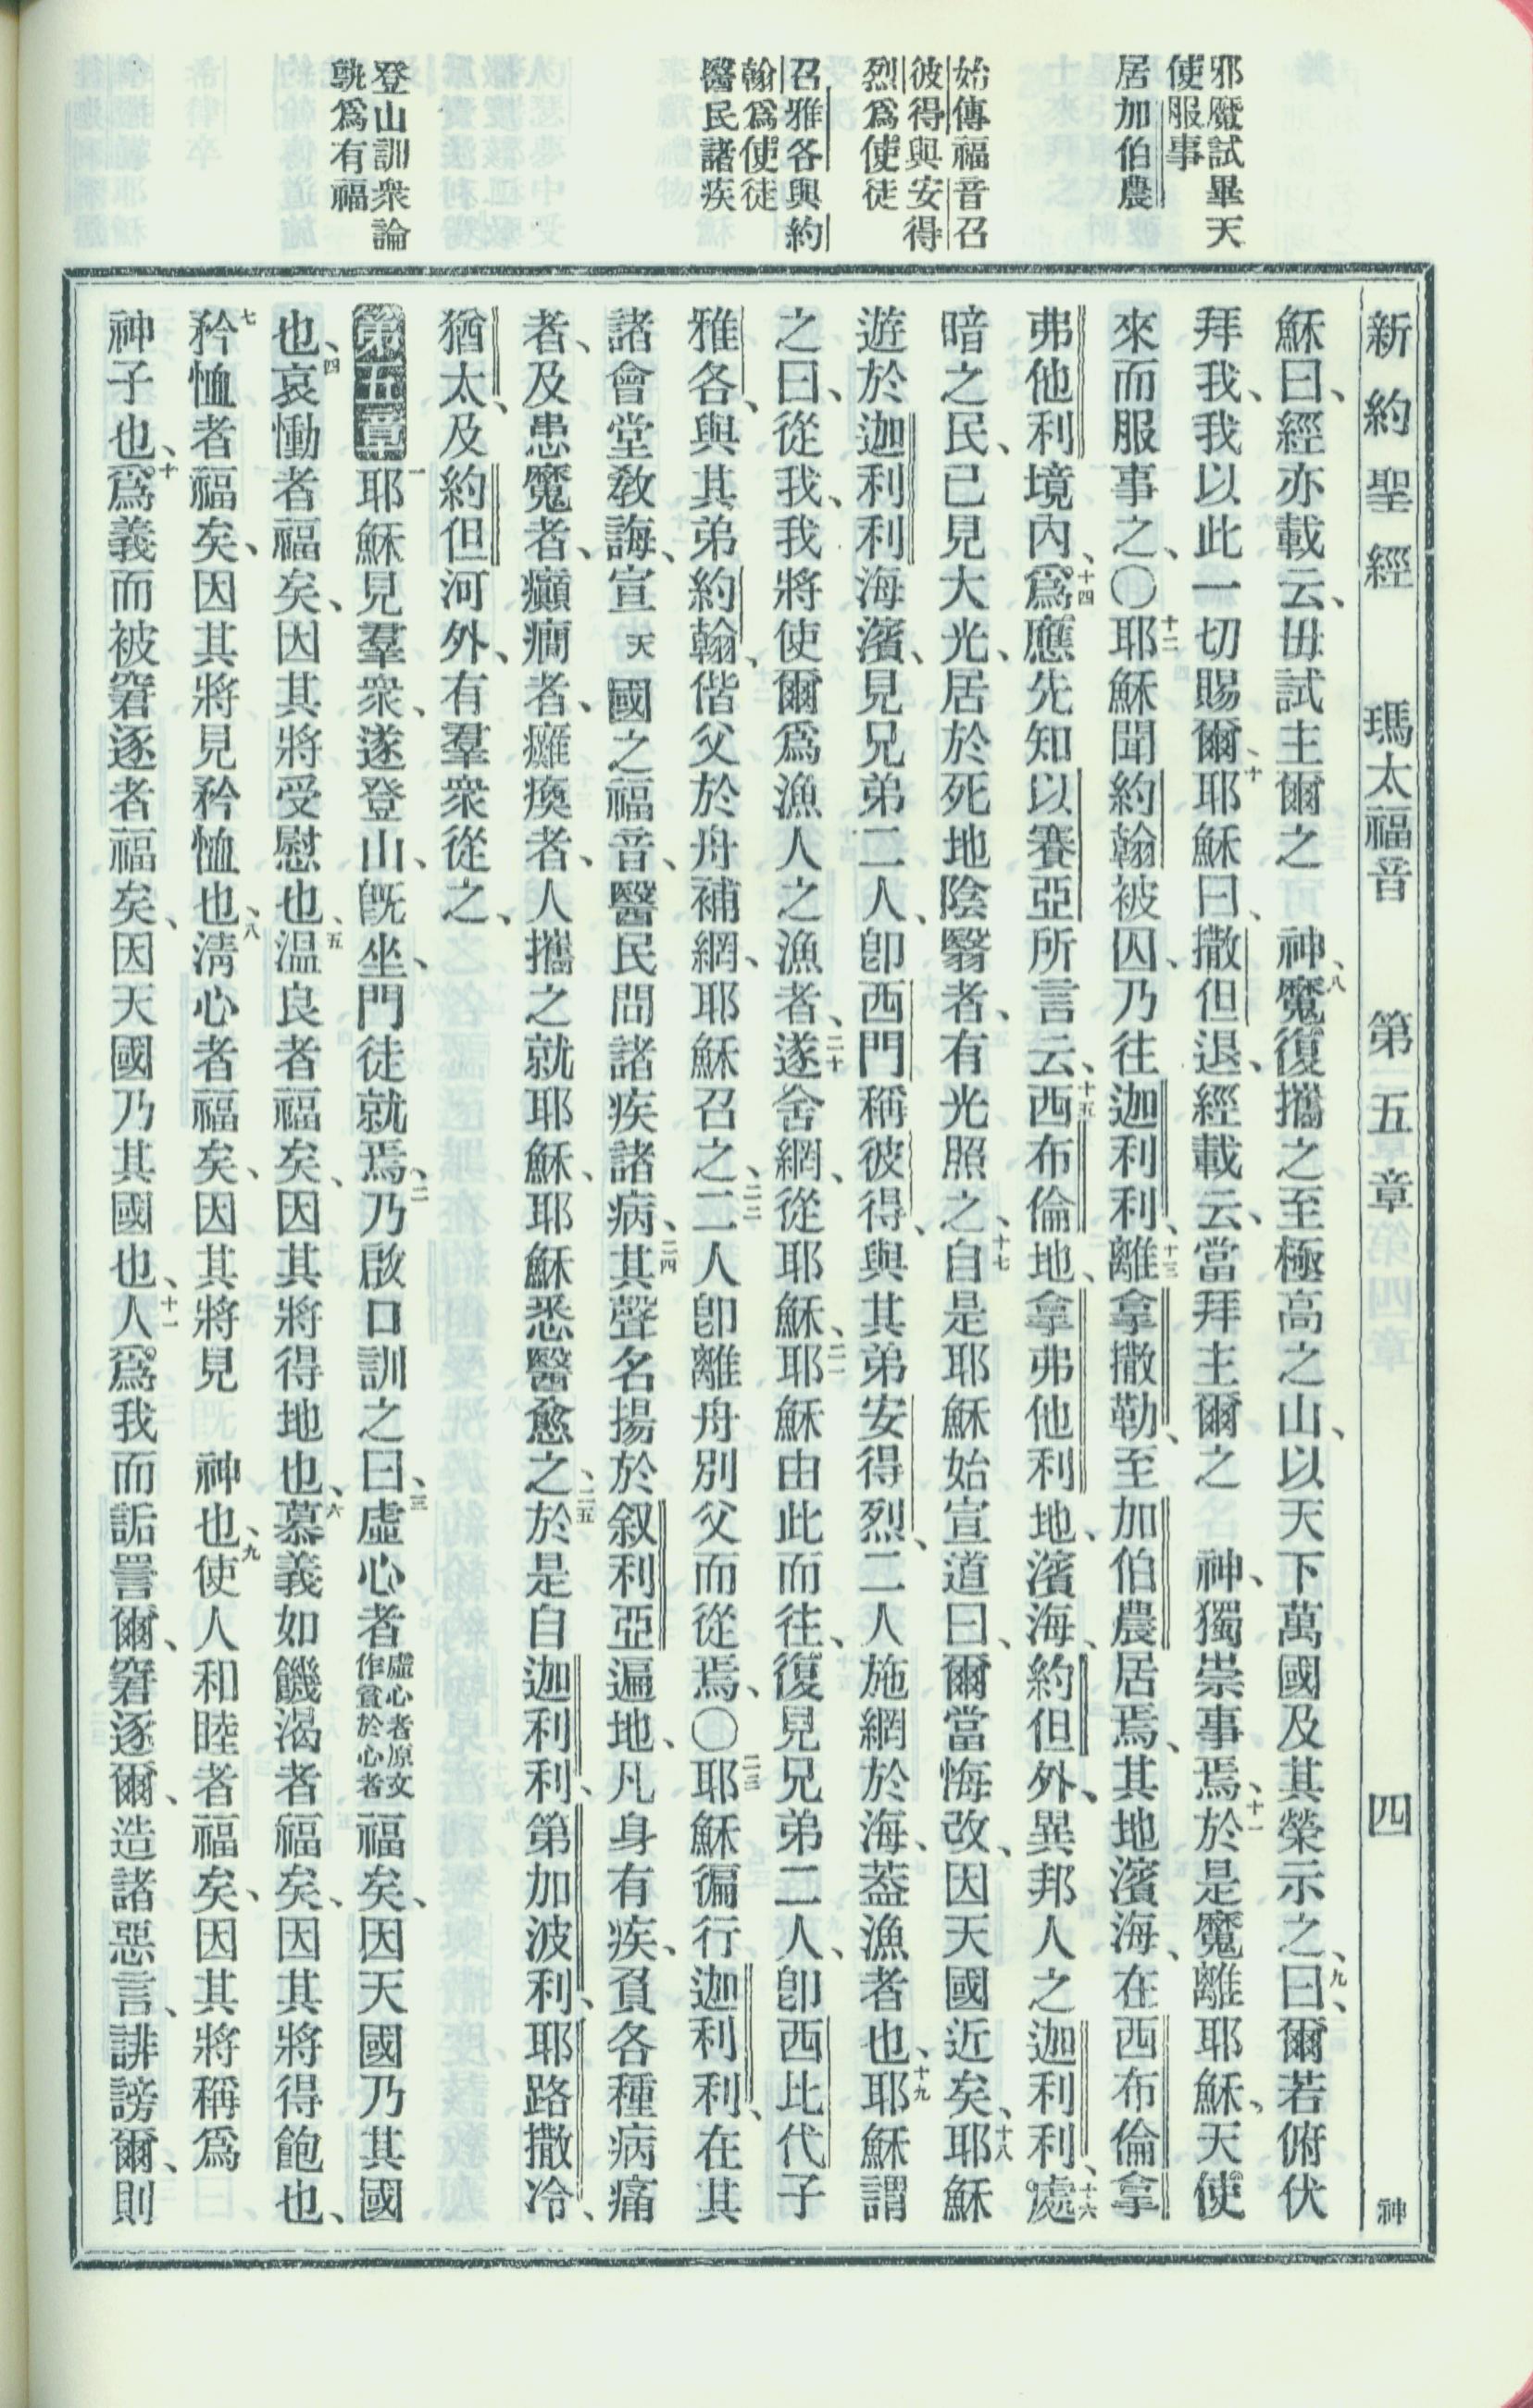 邪魔試畢天
使服事
居加伯農
始傳福音召
彼得與安得
烈爲使徒
召雅各與約
翰爲使徒
醫民諸疾
登山訓衆論
孰爲有福
新約聖經 瑪太福音 第五章 四 神
穌曰、經亦載云、毋試主爾之 神、八魔復攜之至極高之山、以天下萬國及其榮示之、九曰、爾若俯伏
拜我、我以此一切賜爾、十耶穌曰、撒但退、經載云、當拜主爾之 神、獨崇事焉、十一於是魔離耶穌、天使
來而服事之、〇十二耶穌聞約翰被囚、乃往迦利利、十三離拿撒勒、至加伯農居焉、其地濱海、在西布倫拿
弗他利境內、十四爲應先知以賽亞所言云、十五西布倫地、拿弗他利地、濱海、約但外、異邦人之迦利利、十六處
暗之民、已見大光、居於死地陰翳者、有光照之、十七自是耶穌始宣道曰、爾當悔改、因天國近矣、十八耶穌
遊於迦利利海濱、見兄弟二人、卽西門稱彼得、與其弟安得烈、二人施網於海、葢漁者也、十九耶穌謂
之曰、從我、我將使爾爲漁人之漁者、二十遂舍網、從耶穌、二一耶穌由此而往、復見兄弟二人、卽西比代子
雅各、與其弟約翰、偕父於舟補網、耶穌召之、二二二人卽離舟別父而從焉、〇二三耶穌徧行迦利利、在其
諸會堂敎誨、宣天國之福音、醫民間諸疾諸病、二四其聲名揚於叙利亞遍地、凡身有疾、負各種病痛
者、及患魔者、癲癎者、癱瘓者、人攜之就耶穌、耶穌悉醫愈之、二五於是自迦利利、第加波利、耶路撒冷、
猶太、及約但河外、有羣衆從之、
第五章 一耶穌見羣衆、遂登山、旣坐、門徒就焉、二乃啟口訓之曰、三虛心者虛心者原文作貧於心者福矣、因天國乃其國
也、四哀慟者福矣、因其將受慰也、五溫良者福矣、因其將得地也、六慕義如饑渴者福矣、因其將得飽也、
七矜恤者福矣、因其將見矜恤也、八淸心者福矣、因其將見 神也、九使人和睦者福矣、因其將稱爲
神子也、十爲義而被窘逐者福矣、因天國乃其國也、十一人爲我而詬詈爾、窘逐爾、造諸惡言、誹謗爾、則